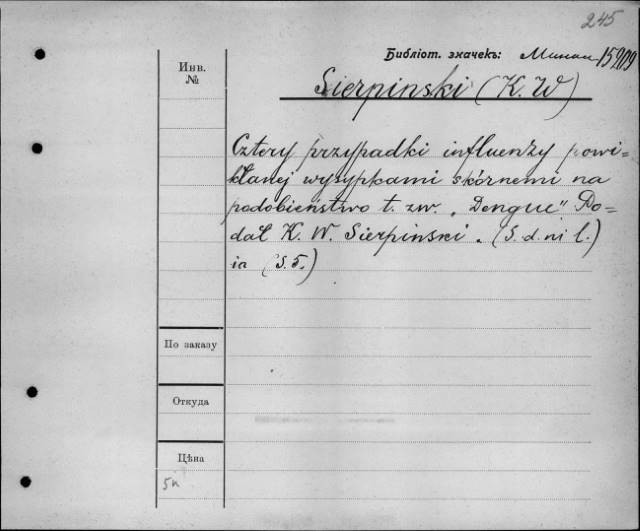 245
Библіот. значекъ: 15209
Инв.
№
Sierpinski (K. W)
Cztery przypadki influenzy powi=
kłanej wysypkami skórnemi na
podobieństwo t. zw. „Dengue" Po=
dał K. W. Sierpinski. (S. d. ni l.)
in (S. 5.)
По заказу
Откуда
Цѣна